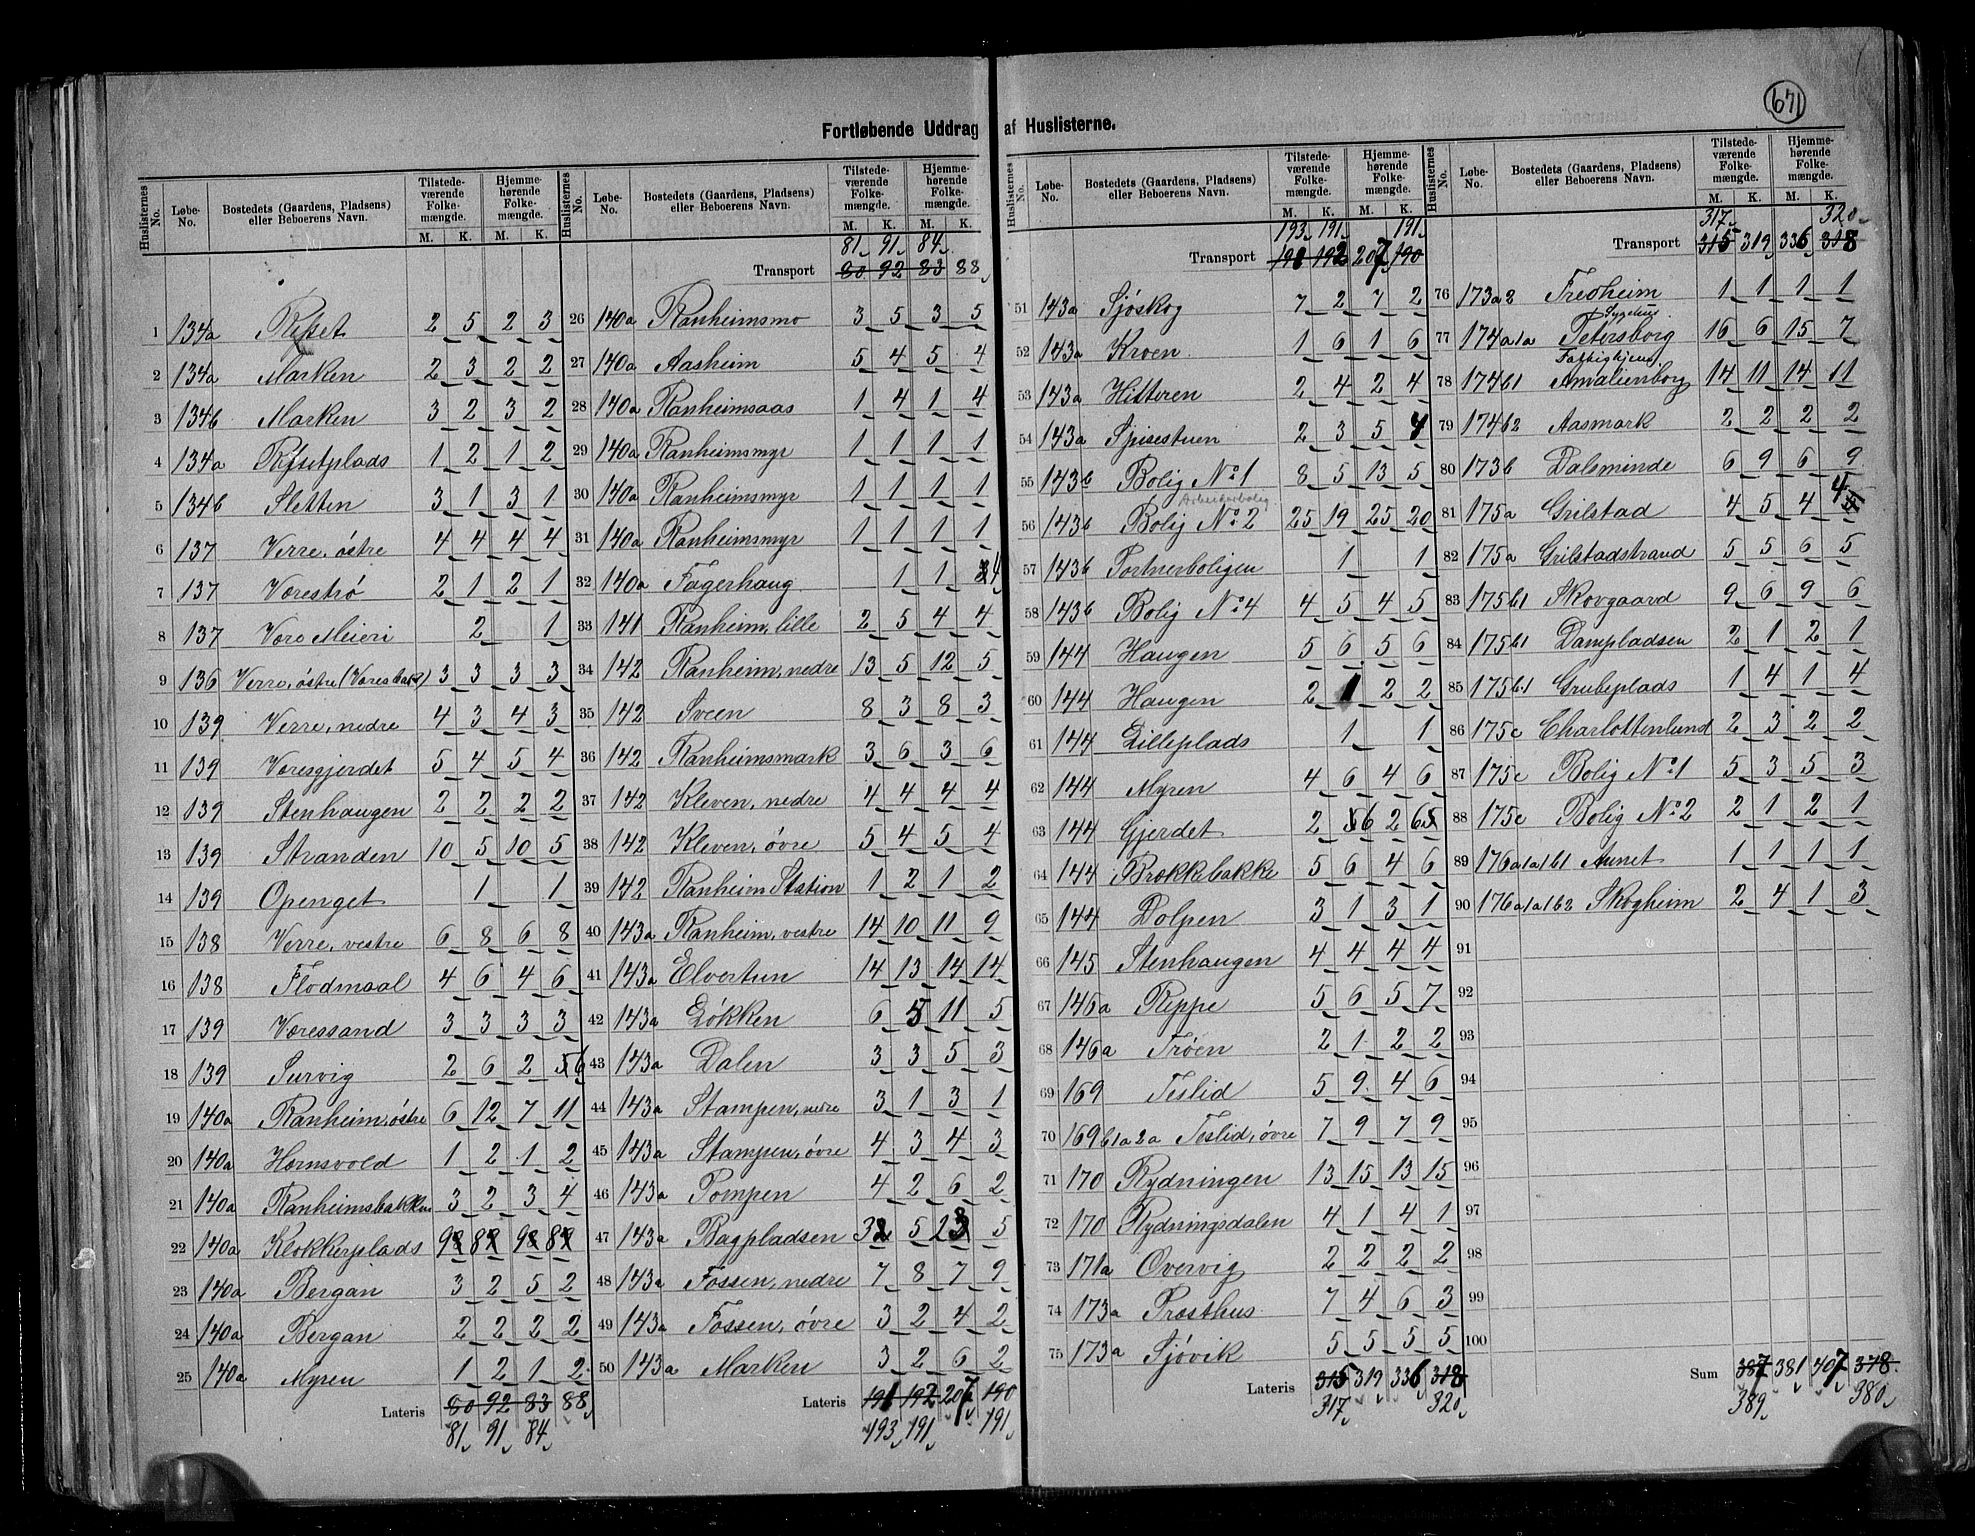 671
Fortløbende Uddrag af Huslisterne.
Huslisternes No. Løbe-No. Bostedets (Gaardens, Pladsens) eller Beboerens Navn. Tilstedeværende Folkemængde. M. K. Hjemmehørende Folkemængde. M. K.
1 134a Refset 2 5 2 3
2 134a Marken 2 3 2 2
3 134b Marken 3 2 3 2
4 134a Refsetplads 1 2 1 2
5 134b Sletten 3 1 3 1
6 137 Verre, østre 4 4 4 4
7 137 Værestrø 2 1 2 1
8 137 Være Meieri 2 1
9 136 Verre, østre 3 3 3 3
10 139 Verre, nedre 4 3 4 3
11 139 Væresgjerdet 5 4 5 4
12 139 Stenhaugen 2 2 2 2
13 139 Stranden 10 5 10 5
14 139 Openget 1 1
15 138 Verre, vestre 6 8 6 8
16 138 Flodmaal 4 6 4 6
17 139 Væressand 3 3 3 3
18 139 Survig 2 6 2 6
19 140a Ranheim, østre 6 12 7 11
20 140a Hornsvold 1 2 1 2
21 140a Ranheimsbakken 3 2 3 4
22 140a Klokkerplads 9 8 9 8
23 140a Bergan 3 2 5 2
24 140a Bergan 2 2 2 2
25 140a Myren 1 2 1 2
Lateris 80 92 83 88
81 91 84
Huslisternes No. Løbe-No. Bostedets (Gaardens, Pladsens) eller Beboerens Navn. Tilstedeværende Folkemængde. M. K. Hjemmehørende Folkemængde. M. K.
81 91 84
Transport 80 92 83 88
26 140a Ranheimsmo 3 5 3 5
27 140a Aasheim 5 4 5 4
28 140a Ranheimsaas 1 4 1 4
29 140a Ranheimsmyr 1 1 1 1
30 140a Ranheimsmyr 1 1 1 1
31 140a Ranheimsmyr 1 1 1 1
32 140a Fagerhaug 1 1 4
33 141 Ranheim, lille 2 5 4 4
34 142 Ranheim, nedre 13 5 12 5
35 142 Sveen 8 3 8 3
36 142 Ranheimsmark 3 6 3 6
37 142 Kleven, nedre 4 4 4 4
38 142 Kleven, øvre 5 4 5 4
39 142 Ranheim Station 1 2 1 2
40 143a Ranheim, vestre 14 10 11 9
41 143a Elvertun 14 13 14 14
42 143a Løkken 6 5 11 5
43 143a Dalen 3 3 5 3
44 143a Stampen, nedre 3 1 3 1
45 143a Stampen, øvre 4 3 4 3
46 143a Pompen 4 2 6 2
47 143a Bagpladsen 3 5 5
48 143a Fossen, nedre 7 8 7 9
49 143a Fossen, øvre 3 2 4 2
50 143a Marken 3 2 6 2
Lateris 191 192 207 190
193 191 191
Huslisternes No. Løbe-No. Bostedets (Gaardens, Pladsens) eller Beboerens Navn. Tilstedeværende Folkemængde. M. K. Hjemmehørende Folkemængde. M. K.
193 191 191
Transport 191 192 207 190
51 143a Sjøskog 7 2 7 2
52 143a Kroen 1 6 1 6
53 143a Hitteren 2 4 2 4
54 143a Spisestuen 2 3 5 4
55 143b Bolig No. 1 8 5 13 5
Arbeiderbolig
56 143b Bolig No. 2 25 19 25 20
57 143b Portnerboligen 1 1
58 143b Bolig No. 4 4 5 4 5
59 144 Haugen 5 6 5 6
60 144 Haugen 2 1 2 2
61 144 Lilleplads 1 1
62 144 Myren 4 6 4 6
63 144 Gjerdet 2 6 2 6
64 144 Brækkebakke 5 6 4 6
65 144 Dolpen 3 1 3 1
66 145 Stenhaugen 4 4 4 4
67 146a Reppe 5 6 5 7
68 146a Trøen 2 1 2 2
69 169 Teslid 5 9 4 6
70 169b1a2a Teslid, øvre 7 9 7 9
71 170 Rydningen 13 15 13 15
72 170 Rydningsdalen 4 1 4 1
73 171a Overvig 2 2 2 2
74 173a Presthus 7 4 6 3
75 173a Sjøvik 5 5 5 5
Lateris 315 319 336 318
317 320
Huslisternes No. Løbe-No. Bostedets (Gaardens, Pladsens) eller Beboerens Navn. Tilstedeværende Folkemængde. M. K. Hjemmehørende Folkemængde. M. K.
317 320
Transport 315 319 336 318
76 173a2 Fredheim 1 1 1 1
Sygehus
77 174a1a Petersborg 16 6 15 7
Fattighjem
78 174b1 Amalienborg 14 11 14 11
79 174b2 Aasmark 2 2 2 2
80 173b Dalsminde 6 9 6 9
81 175a Grilstad 4 5 4 4
82 175a Grilstadstrand 5 5 6 5
83 175b1 Skovgaard 9 6 9 6
84 175b1 Dampladsen 2 1 2 1
85 175b1 Grubeplads 1 4 1 4
86 175c Charlottenlund 2 3 2 2
87 175c Bolig No. 1 5 3 5 3
88 175c Bolig No. 2 2 1 2 1
89 176a1a1b1 Aunet 1 1 1 1
90 176a1a1b2 Skogheim 2 4 1 3
91
92
93
94
95
96
97
98
99
100
Sum 387 381 407 378
389 380